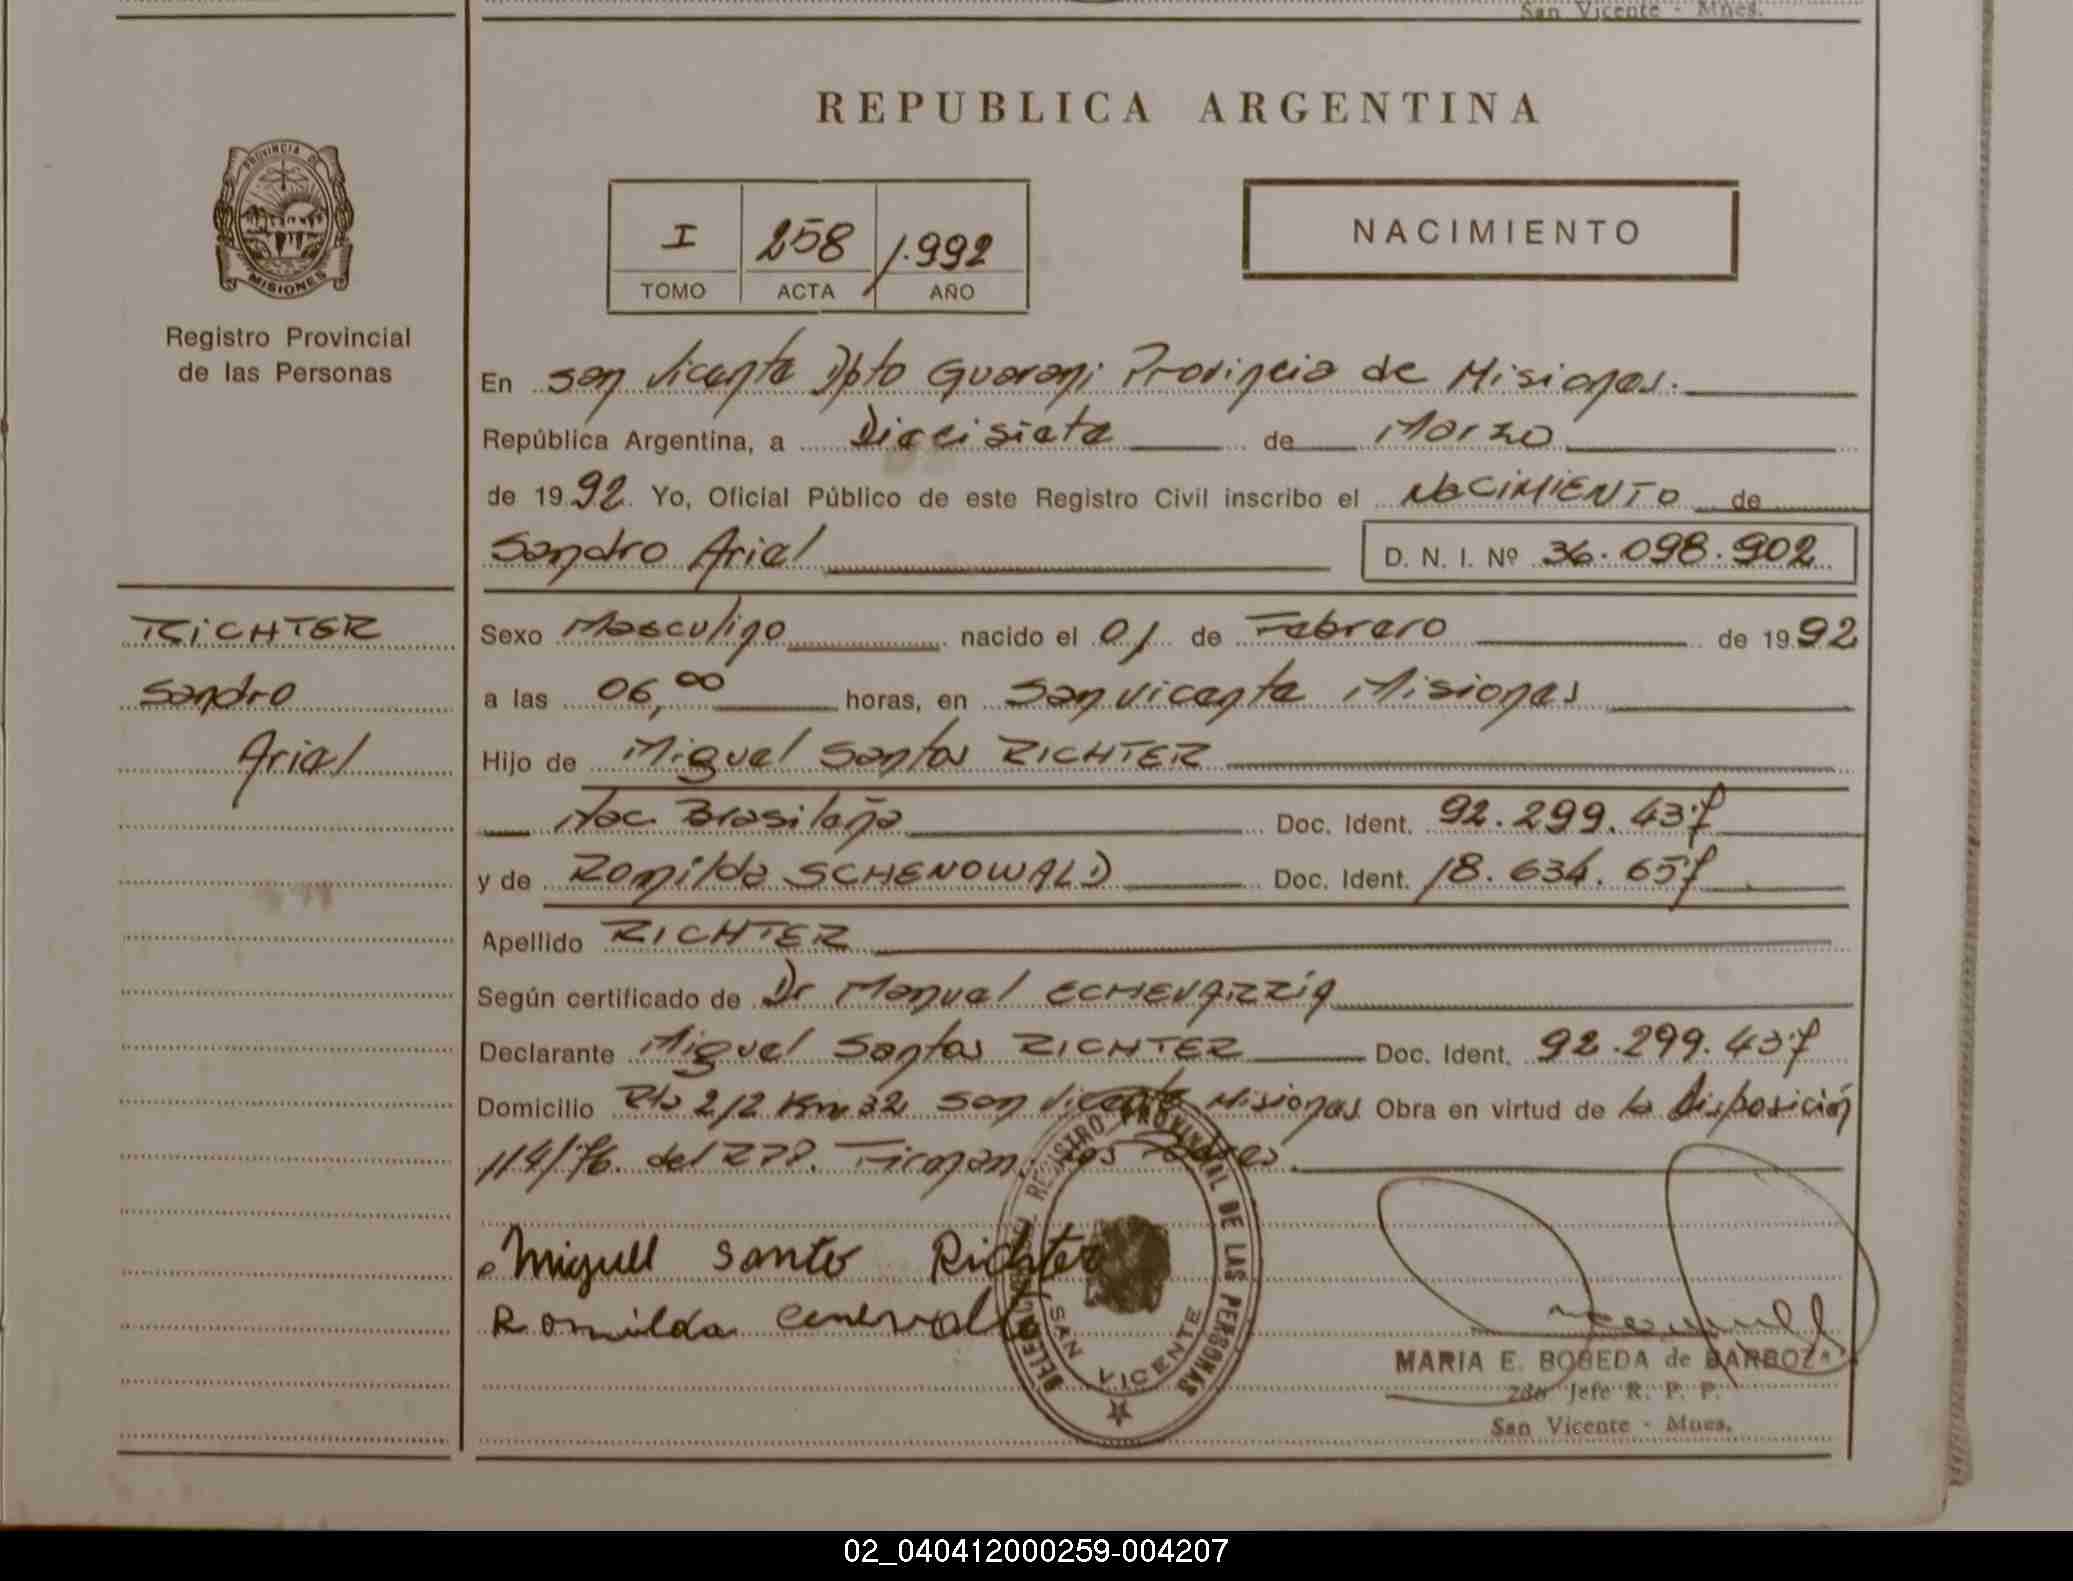 San Vicente - Mnes.
REPUBLICA ARGENTINA
PROVINCIA DE
MISIONES
Registro Provincial
de las Personas
I 258 1.992
TOMO ACTA AÑO
NACIMIENTO
En San Vicente Dpto Guarani Provincia de Misiones.
República Argentina, a Diecisiete de Marzo
de 1992. Yo, Oficial Público de este Registro Civil inscribo el NACIMIENTO de
Sandro Ariel D. N. I. Nº 36.098.902
RICHTER
Sandro
Ariel
Sexo Masculino nacido el 01 de Febrero de 1992
a las 06,00 horas, en San Vicente Misiones
Hijo de Miguel Santos RICHTER
Nac. Brasileña Doc. Ident. 92.299.437
y de Romilda SCHENOWALD Doc. Ident. 18.634.657
Apellido RICHTER
Según certificado de Dr Manuel ECHEVARRíA
Declarante Miguel Santos RICHTER Doc. Ident. 92.299.437
Domicilio Rta 212 Km 32 San Vicente Misiones Obra en virtud de la Disposición
114/76. del RPP. Firman Los Padres.
Miguell Santo Richter
Romilda
DELEG REGISTRO PROVINCIAL DE LAS PERSONAS
SAN VICENTE
MARIA E. BOBEDA de BARBOZA
2do Jefe R. P. P.
San Vicente - Mnes.
02_040412000259-004207